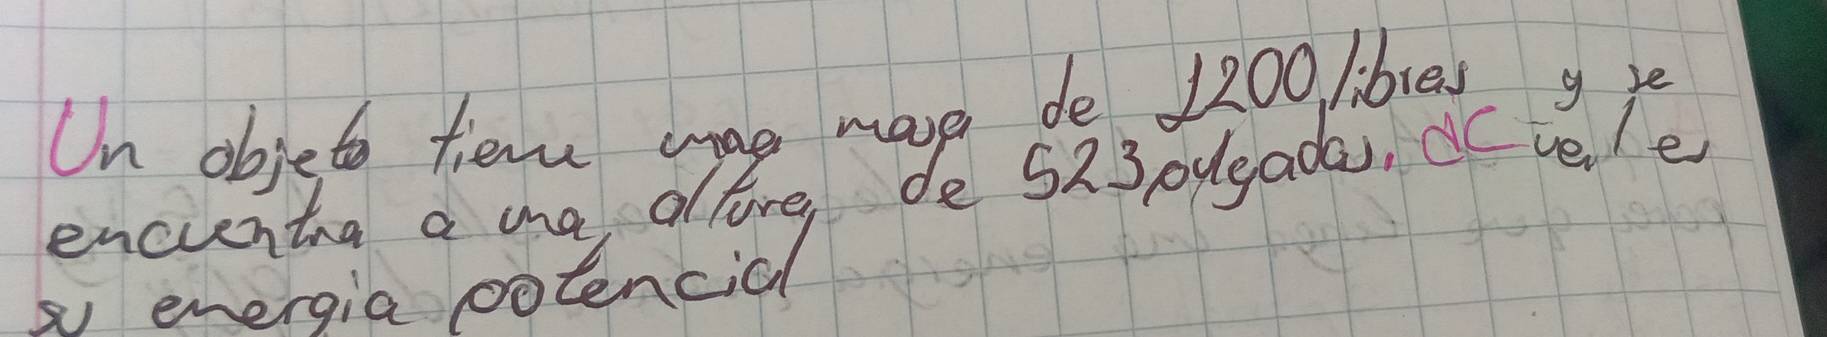 Un objeto tiene una masa de 1200 libras y se
encuentra a una altura de 523 pulgadas. dC vale
su energia potencial